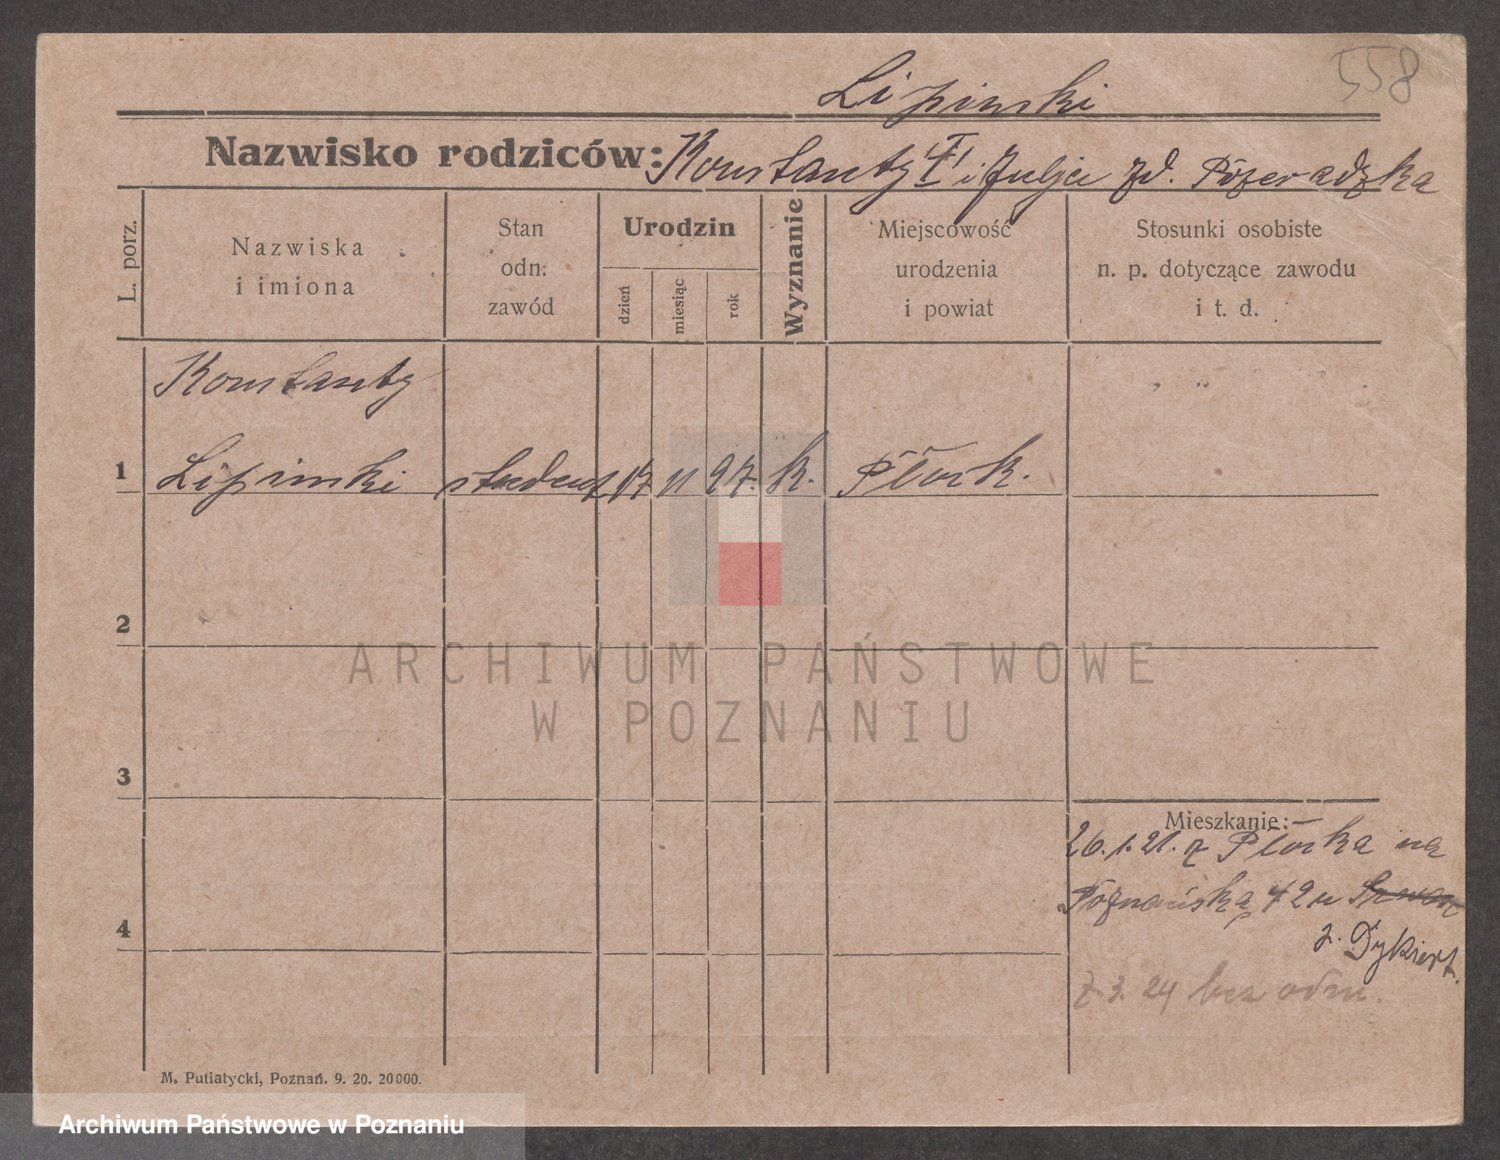 558
Lipinski
Nazwisko rodziców: Konstanty i Julja zd.
L. porz.
Nazwiska
i imiona
Stan
odn:
zawód
Urodzin
dzień
miesiąc
rok
Wyznanie
Miejscowość
urodzenia
i powiat
Stosunki osobiste
n. p. dotyczące zawodu
i t. d.
Konstanty
1 Lipinski student 17 11 97. k. Płock.
2
ARCHIWUM PAŃSTWOWE
W POZNANIU
3
Mieszkanie:
26.1.21. z Płocka na
Poznańską 42 u
z. Dykiert.
4
3. 24 bez odm.
M. Putiatycki, Poznań. 9. 20. 20000.
Archiwum Państwowe w Poznaniu